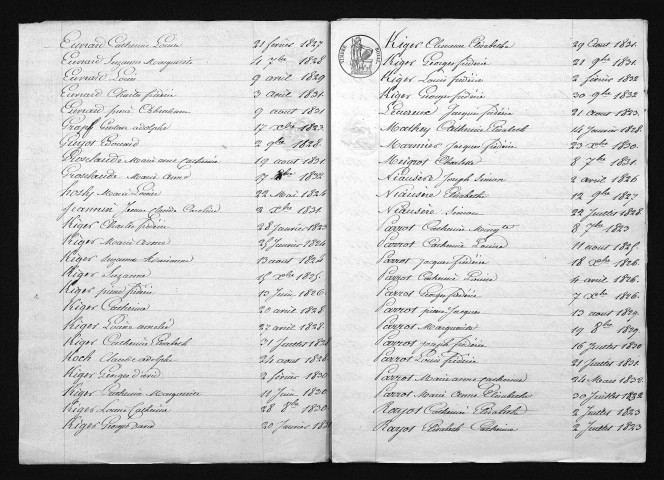 Evrard Catherine Louise 21 février 1827
Evrard Suzanne Marguerite 4 7bre 1828
Evrard Louis 9 avril 1829
Evrard Charles frédéric 3 avril 1831
Evrard pierre 9 aout 1831
Graff Gustave adolphe 17 Xbre 1823
Edouard 2 9bre 1828
Groslaude Marie anne catherine 19 aout 1831
Groslaude Marie Anne 17 8bre 1832
Marie Louise 22 Mai 1824
Jeannin Jeanne Claude Caroline 2 Xbre 1831
Kiger Charles frédéric 28 Janvier 1823
Kiger Marie anne 25 Janvier 1824
Kiger Suzanne 13 aout 1824
Kiger Suzanne 15 Xbre 1825
Kiger pierre frédéric 10 Juin 1826
Kiger Catherine 20 avril 1828
Kiger Louise amelie 27 avril 1828
Kiger Catherine Elisabeth 31 Juillet 1828
Koch Claude adolphe 24 aout 1828
Kiger Georges david 2 février 1830
Kiger Catherine Marguerite 11 Juin 1830
Kiger Louise Catherine 28 8bre 1830
Kiger Georges David 20 Janvier 1831
Kiger Clemence Elisabeth 29 Aout 1831
Kiger Georges frédéric 21 9bre 1831
Kiger Louis frédéric 2 février 1832
Kiger Georges frédéric 30 9bre 1832
Lecureux Jacques frédéric 21 aout 1823
Mathey Catherine Elisabeth 14 Janvier 1828
Marmier Jacques frédéric 23 Xbre 1830
Mignot Elisabeth 8 7bre 1831
Niausère Joseph Simon 2 avril 1826
Niausère Elisabeth 12 9bre 1827
Niausère Simon 22 Juillet 1828
Parrot Catherine Margte 8 7bre 1823
Parrot Catherine Louise 11 aout 1825
Parrot Jacques frédéric 18 Xbre 1826
Parrot Catherine Louise 4 avril 1826
Parrot Georges frédéric 7 Xbre 1826
Parrot pierre Jacques 13 aout 1829
Parrot Marguerite 19 8bre 1829
Parrot Joseph frédéric 16 Juillet 1830
Parrot Louis frédéric 21 Juillet 1831
Parrot Marie anne catherine 24 Mars 1832
Parrot Marie Anne Elisabeth 30 Juillet 1832
Rayot Catherine Elisabeth 2 Juillet 1823
Rayot Elisabeth Catherine 2 Juillet 1823